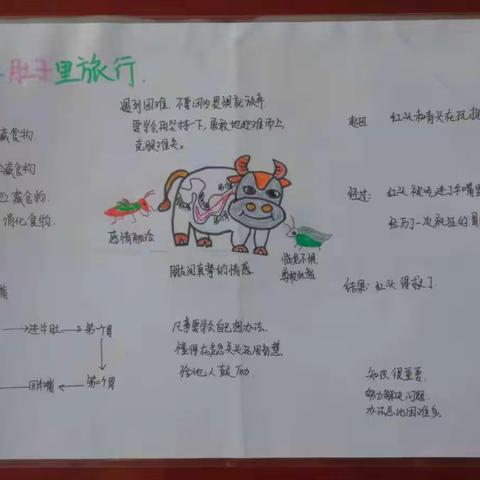 肚子里旅行
遇到困难,不要因为畏惧就放弃
要学会再坚持一下,勇敢地迎难而上,
克服难关。
藏食物.
藏食物
藏食物.
消化食物.
感情融洽
临危不惧
勇敢机智
朋友间真挚的情感.
起因: 红头和青头在玩捉
经过: 红头 被吃进了牛嘴里
经历了一次
结果: 红头 得救了.
嘴
进牛肚
第一个胃
回牛嘴
第二个胃
凡事要学会自己想办法.
懂得在危急关头运用智慧.
给他人鼓励
知识很重要.
努力解决问题
办法总比困难多.